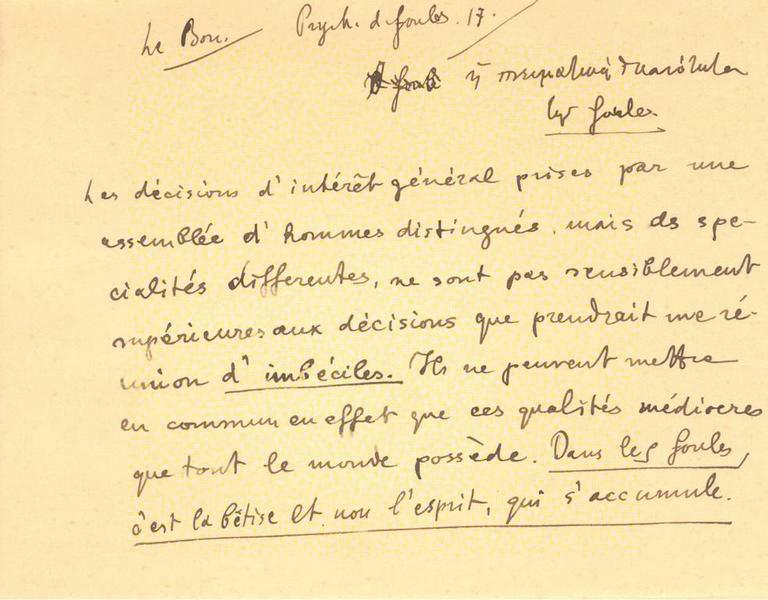 Le Bon. Psych. d. foules. 17.
ἡ πνευματικὴ
foules
Les décisions d'intérêt général prises par une
assemblée d'hommes distingués, mais ds spe-
cialités differentes, ne sont pas sensiblement
supérieures aux décisions que prendrait une ré-
union d'imbéciles. Ils ne peuvent mettre
en commun en effet que ces qualités médiocres
que tout le monde possède. Dans les foules,
c'est la bêtise et non l'esprit, qui s'accumule.